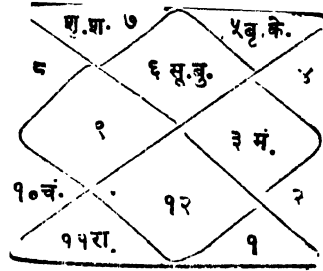 शु.श. ७ ५बृ.के.
८ ६ सू.बु. ४
९ ३ मं.
१०चं. १२ २
११रा. १